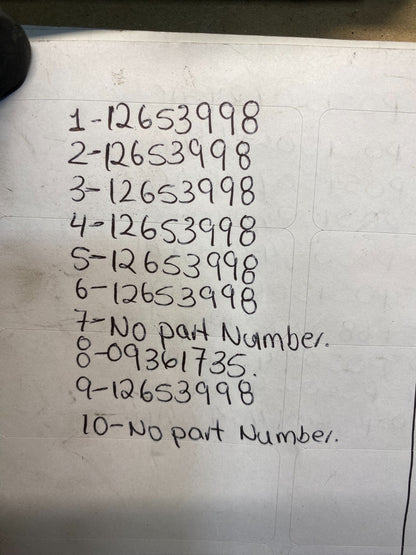 1-12653998
2-12653998
3-12653998
4-12653998
5-12653998
6-12653998
7-No part Number.
8-09361735.
9-12653998
10-No part Number.